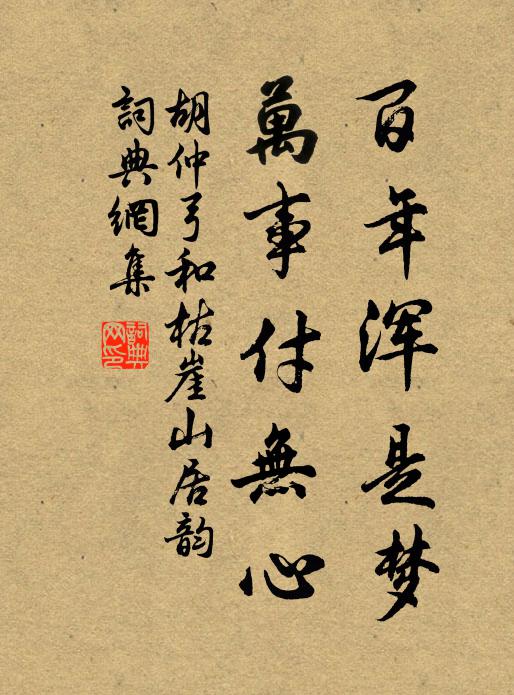 百年浑是梦
萬事付無心
胡仲弓和枯崖山居韵
詞典網集
詞典网印